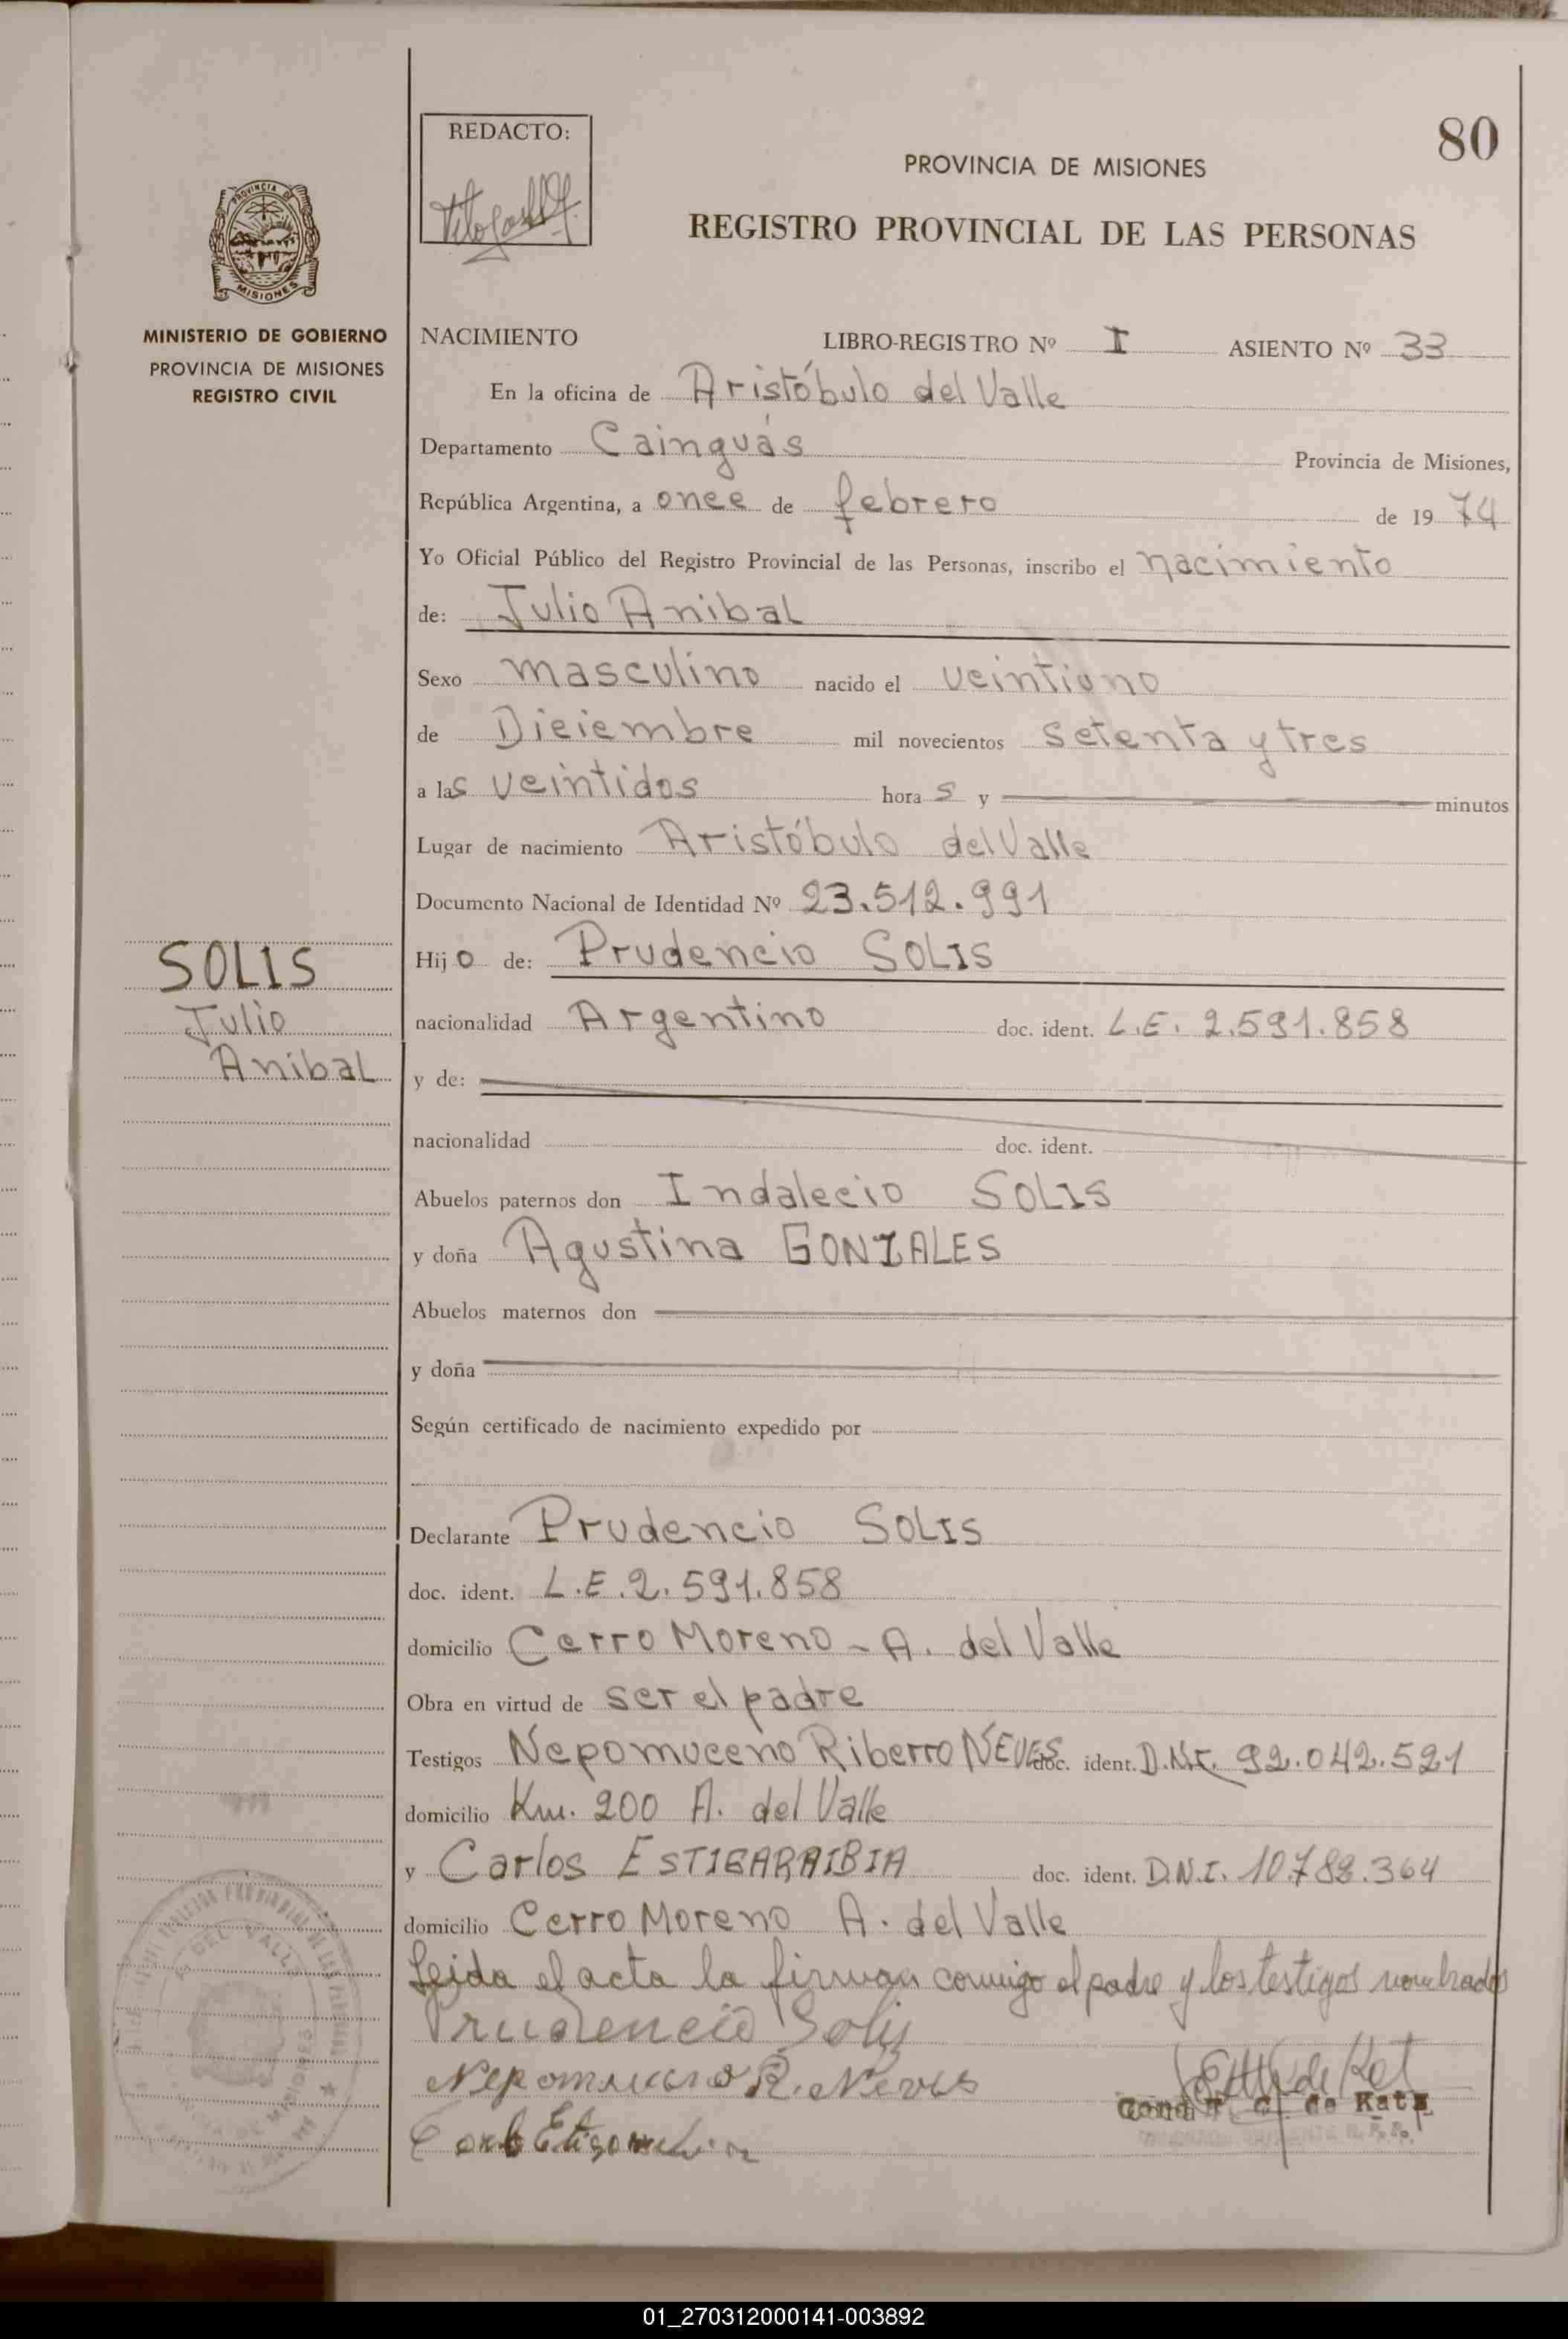 80
REDACTO:
PROVINCIA DE MISIONES
REGISTRO PROVINCIAL DE LAS PERSONAS
PROVINCIA DE
MISIONES
MINISTERIO DE GOBIERNO
PROVINCIA DE MISIONES
REGISTRO CIVIL
NACIMIENTO LIBRO-REGISTRO Nº I ASIENTO Nº 33
En la oficina de Aristóbulo del Valle
Departamento Cainguás Provincia de Misiones,
República Argentina, a once de febrero de 1974
Yo Oficial Público del Registro Provincial de las Personas, inscribo el nacimiento
de: Julio Anibal
Sexo masculino nacido el veintiuno
de Diciembre mil novecientos setenta y tres
a las veintidos horas y minutos
Lugar de nacimiento Aristóbulo del Valle
Documento Nacional de Identidad Nº 23.512.991
SOLIS
Julio
Anibal
Hijo de: Prudencio SOLIS
nacionalidad Argentino doc. ident. L.E. 2.591.858
y de:
nacionalidad doc. ident.
Abuelos paternos don Indalecio SOLIS
y doña Agustina GONZALES
Abuelos maternos don
y doña
Según certificado de nacimiento expedido por
Declarante Prudencio SOLIS
doc. ident. L.E. 2.591.858
domicilio Cerro Moreno - A. del Valle
Obra en virtud de ser el padre
Testigos Nepomuceno Riberro NEVES doc. ident. D.N.I. 92.042.521
domicilio Km. 200 A. del Valle
y Carlos ESTIGARRIBIA doc. ident. D.N.I. 10.788.364
domicilio Cerro Moreno A. del Valle
Leida el acta la firman conmigo el padre y los testigos nombrados
Prudencio Solis
Nepomuceno R. Neves
de Katz
01_270312000141-003892